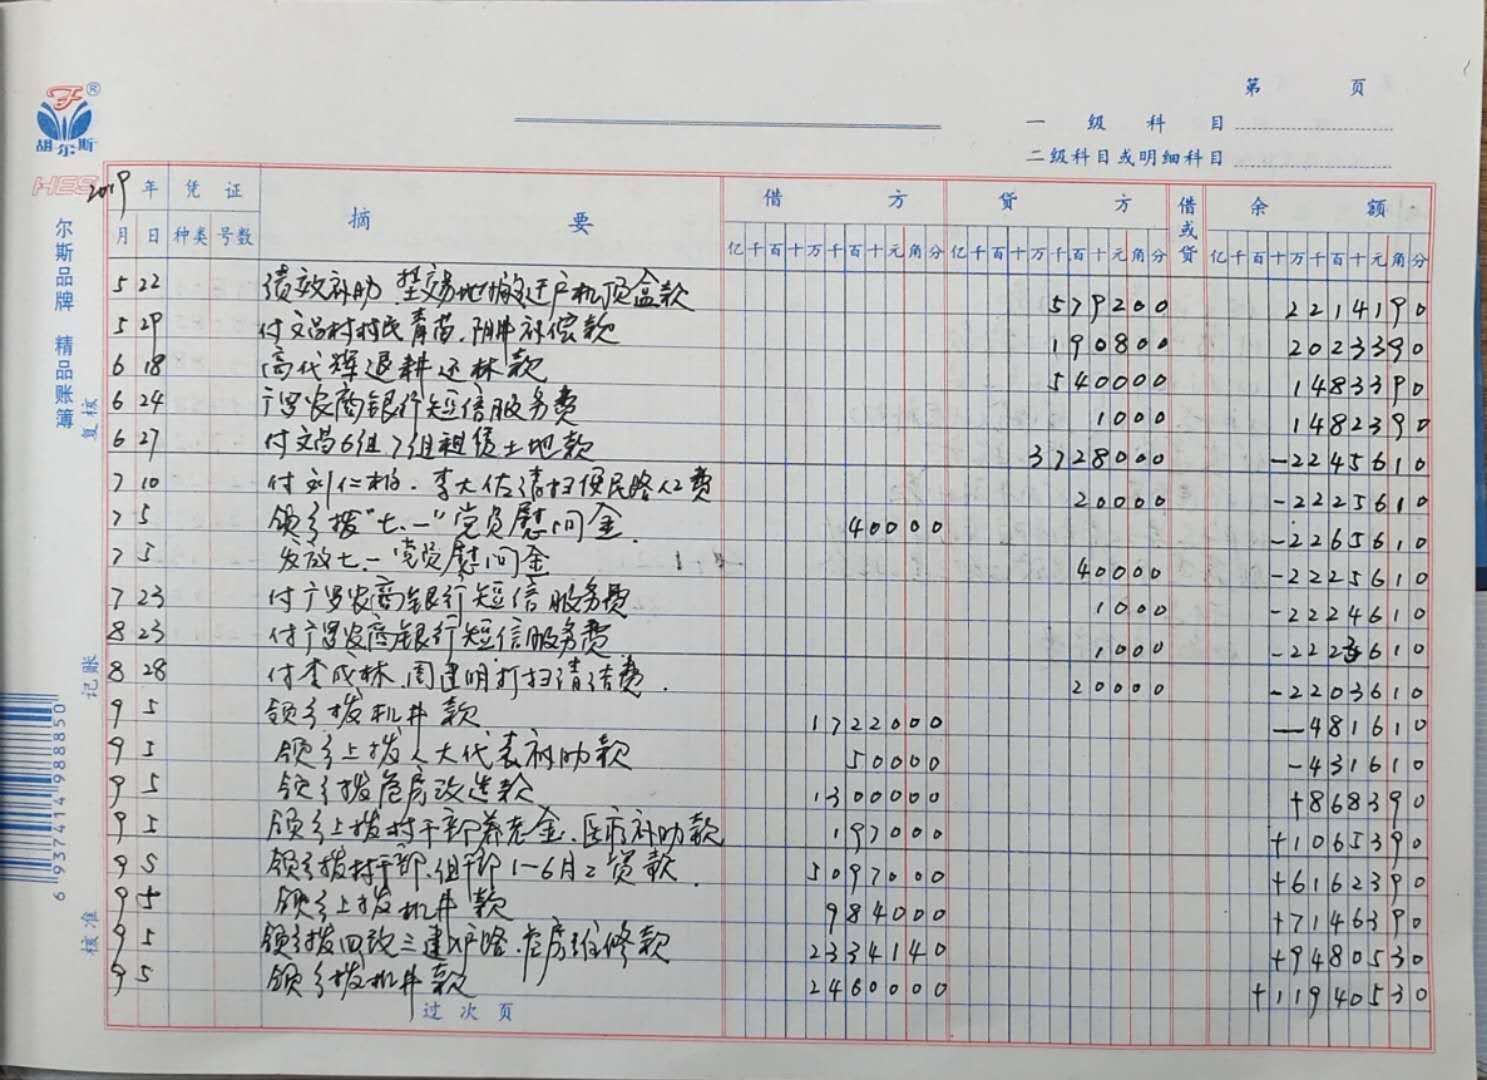 第 页
一级科目
二级科目或明细科目
胡尔斯
HES
尔斯品牌 精品账簿
复核
记账
核准
6 937414 988850
2019年 凭证 摘要 借方 贷方 借或贷 余额
月 日 种类 号数 亿千百十万千百十元角分 亿千百十万千百十元角分 亿千百十万千百十元角分
5 22 绩效补助 易地搬迁户机顶盒款 579200 2214190
5 29 付文昌村村民青苗.附井补偿款 190800 2023390
6 18 高代辉退耕还林款 540000 1483390
6 24 广罗农商银行短信服务费 1000 1482390
6 27 付文昌6组7组租赁土地款 3728000 -2245610
7 10 付刘仁柏.李大佐清扫便民路人工费 20000 -2225610
7 5 领乡拨"七.一"党员慰问金. 40000 -2265610
7 5 发放七.一党员慰问金 40000 -2225610
7 23 付广罗农商银行短信服务费 1000 -2224610
8 23 付广罗农商银行短信服务费 1000 -2223610
8 28 付李成林.周建明打扫清洁费. 20000 -2203610
9 5 领乡拨机井款 1722000 -481610
9 5 领乡上拨人大代表补助款 50000 -431610
9 5 领乡拨危房改造款 1300000 +868390
9 5 领乡上拨村干部养老金.医疗补助款 197000 +1065390
9 5 领乡拨村干部.组干部1-6月工资款. 5097000 +6162390
9 5 领乡上拨机井款 984000 +7146390
9 5 领乡拨四改三建入户路.危房维修款 2334140 +9480530
9 5 领乡拨机井款 2460000 +11940530
过次页